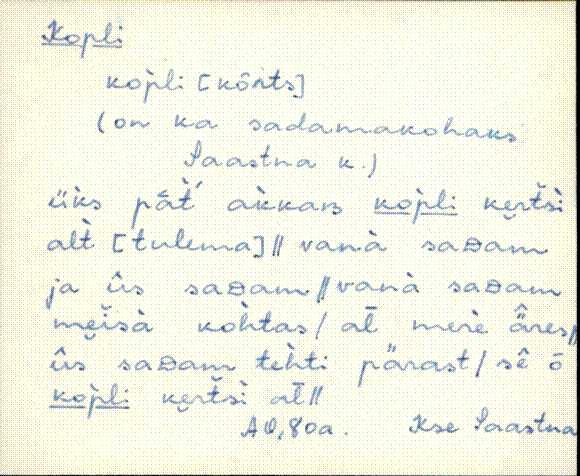 Kopli
kòpli [kôrts]
(on ka sadamakohaks
Saastna k.)
üks pāt́ akkaʙ kòpli kertsi
alt [tulema] // vanà saᴅam
ja ûs saᴅam // vanà saᴅam
mèisà kòhtas / al̄ merè ä̂res //
ûs saᴅam tèhti pärast / sê ō
kòpli kertsì al̄ //
AV, 80a. Kse Saastna